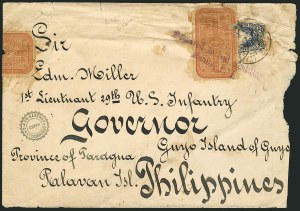 Sir
Edm. Miller
1st Lieutnant 29th U.S. Infantry
Governor
Guyo Island of Guyo
Province of Paragua
Palavan Isl. Philippines